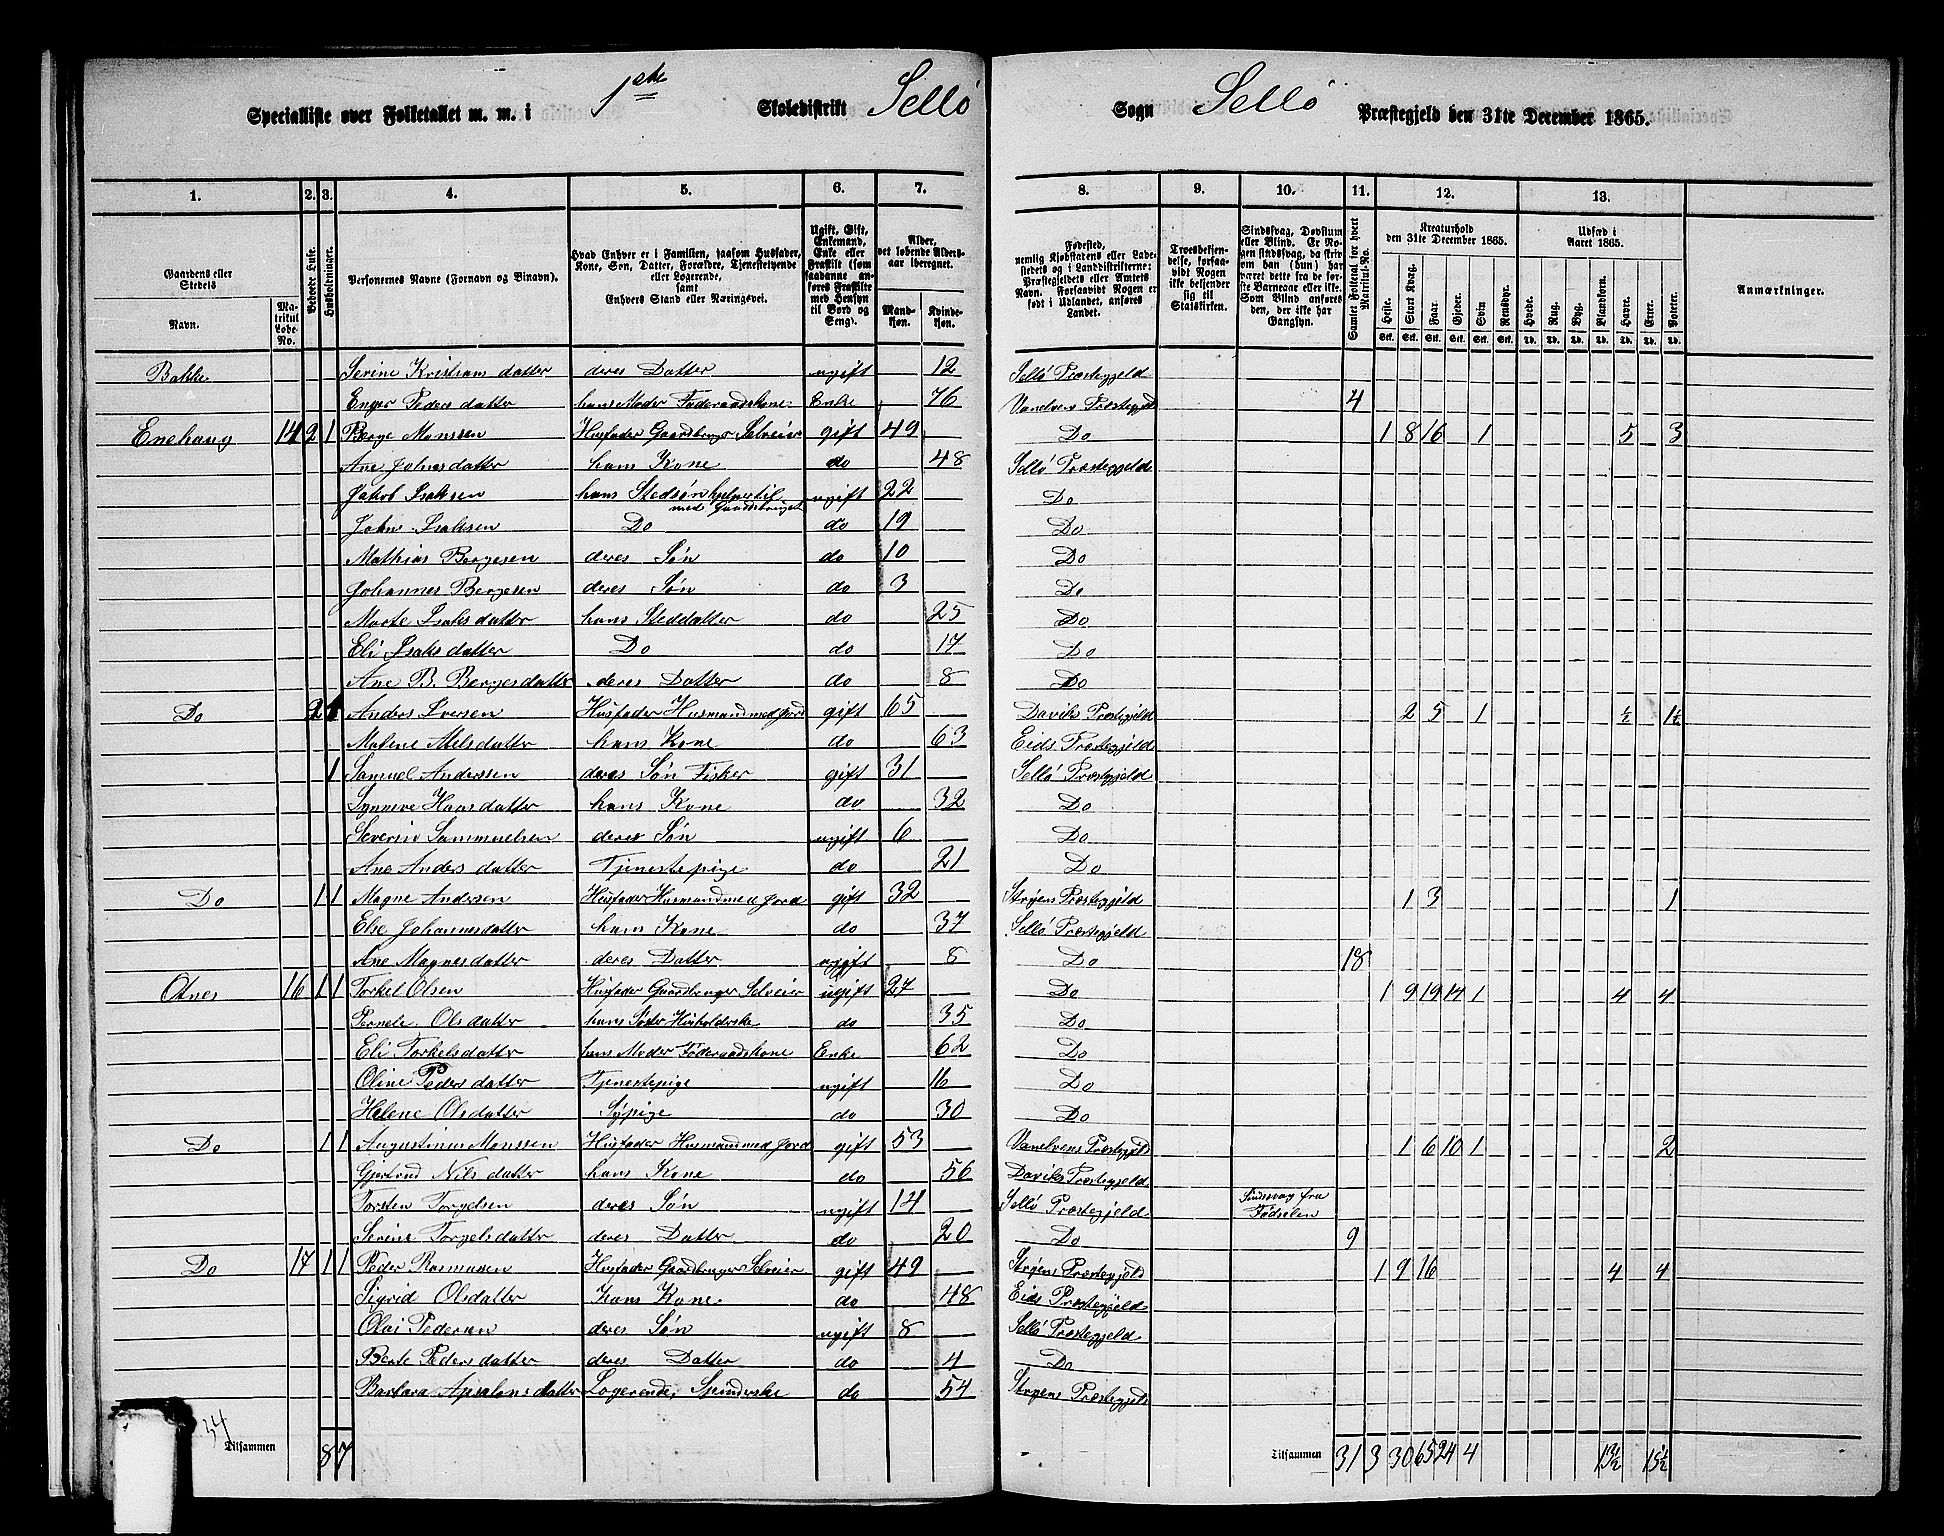 Specialliste over Folketallet m. m. i 1ste Skoledistrikt Sellø Sogn Sellø Præstegjeld den 31te December 1865.
1. 2. 3. 4. 5. 6. 7. 8. 9. 10. 11. 12. 13.
Gaardens eller Stedets Navn. Matrikul Løbe-No. Beboede Huse. Husholdninger. Personernes Navne (Fornavn og Binavn). Hvad Enhver er i Familien, saasom Husfader, Kone, Søn, Datter, Forældre, Tjenestetyende eller Logerende, samt Enhvers Stand eller Næringsvei. Ugift, Gift, Enkemand, Enke eller Fraskilt (som saadanne anføres Fraskilte med Hensyn til Bord og Seng). Alder, det løbende Alders-aar iberegnet. Mand-kjøn. Kvinde-kjøn. Fødested, nemlig Kjøbstadens eller Ladestedets og i Landdistrikterne: Præstegjeldets eller Amtets Navn. Forsaavidt Nogen er født i Udlandet, anføres Landet. Troesbekjendelse, forsaavidt Nogen ikke bekjender sig til Statskirken. Sindssvag, Døvstum eller Blind. Er Nogen sindssvag, da skriv om han (hun) har været dette fra de første Barneaar eller ikke. Som Blind anføres den, der ikke har Gangsyn. Samlet Folketal for hvert Matrikul-No. Kreaturhold den 31te December 1865. Heste. Stort Kvæg. Faar. Gjeder. Svin. Rensdyr. Udsæd i Aaret 1865. Hvede. Rug. Byg. Blandkorn. Havre. Erter. Poteter. Anmærkninger.
Stk. Stk. Stk. Stk. Stk. Stk. Td. Td. Td. Td. Td. Td. Td.
Bakke Serine Kristians datter deres Datter ugift 12 Sellø Præstegjeld
Enger Peders datter hans Moder Føderaadskone Enke 76 Vanelvens Præstegjeld 4
Enehaug 14 2 1 Børge Monssen Husfader Gaardbruger Selveier gift 49 Do 1 8 16 1 5 3
Ane Johnsdatter hans Kone do 48 Sellø Præstegjeld
Jakob Isaksen hans Stedsøn hjelper til med Gaardsbruget ugift 22 Do
John Isaksen Do do 19 Do
Mathias Børgesen deres Søn do 10 Do
Johannes Børgesen deres Søn do 3 Do
Marte Isaks datter hans Steddatter do 25 Do
Eli Isaks datter Do do 17 Do
Ane B. Børgesdatter deres Datter do 8 Do
Do 2 1 Anders Iversen Husfader Husmand med Jord gift 65 Daviks Præstegjeld 2 5 1 ½ 1½
Malene Nielsdatter hans Kone do 63 Eids Præstegjeld
1 Samuel Anderssen deres Søn Fisker gift 31 Sellø Præstegjeld
Synneve Hansdatter hans Kone do 32 Do
Severin Sammuelsen deres Søn ugift 6 Do
Ane Anders datter Tjenestepige do 21 Do
Do 1 1 Magne Andersen Husfader Husmand med Jord gift 32 Stryens Præstegjeld 1 3 1
Else Johannesdatter hans Kone do 37 Sellø Præstegjeld
Ane Magnesdatter deres Datter ugift 8 Do 18
Otnes 16 1 1 Torkel Olsen Husfader Gaardbruger Selveier ugift 27 Do 1 9 19 14 1 4 4
Pernele Olsdatter hans Søster Husholderske do 35 Do
Eli Torkelsdatter hans Moder Føderaadskone Enke 62 Do
Oline Peders datter Tjenestepige ugift 16 Do
Helene Olsdatter Sypige do 30 Do
Do 1 1 Augustinus Monssen Husfader Husmand med Jord gift 53 Vanelvens Præstegjeld 1 6 10 1 2
Gjertrud Nils datter hans Kone do 56 Daviks Præstegjeld
Torsten Torgelsen deres Søn ugift 14 Sellø Præstegjeld Sindssvag fra Fødselen
Serine Torgelsdatter deres Datter do 20 Do 9
Do 17 1 1 Peder Rasmussen Husfader Gaardbruger Selveier gift 49 Stryens Præstegjeld 1 9 16 4 4
Sigrid Olsdatter hans Kone do 48 Eids Præstegjeld
Olai Pedersen deres Søn ugift 8 Sellø Præstegjeld
Berte Peders datter deres Datter do 4 Do
Barbara Apsalons datter Logerende, Spinderske do 54 Stryens Præstegjeld
34 Tilsammen 8 7 Tilsammen 31 3 30 65 24 4 13½ 15½